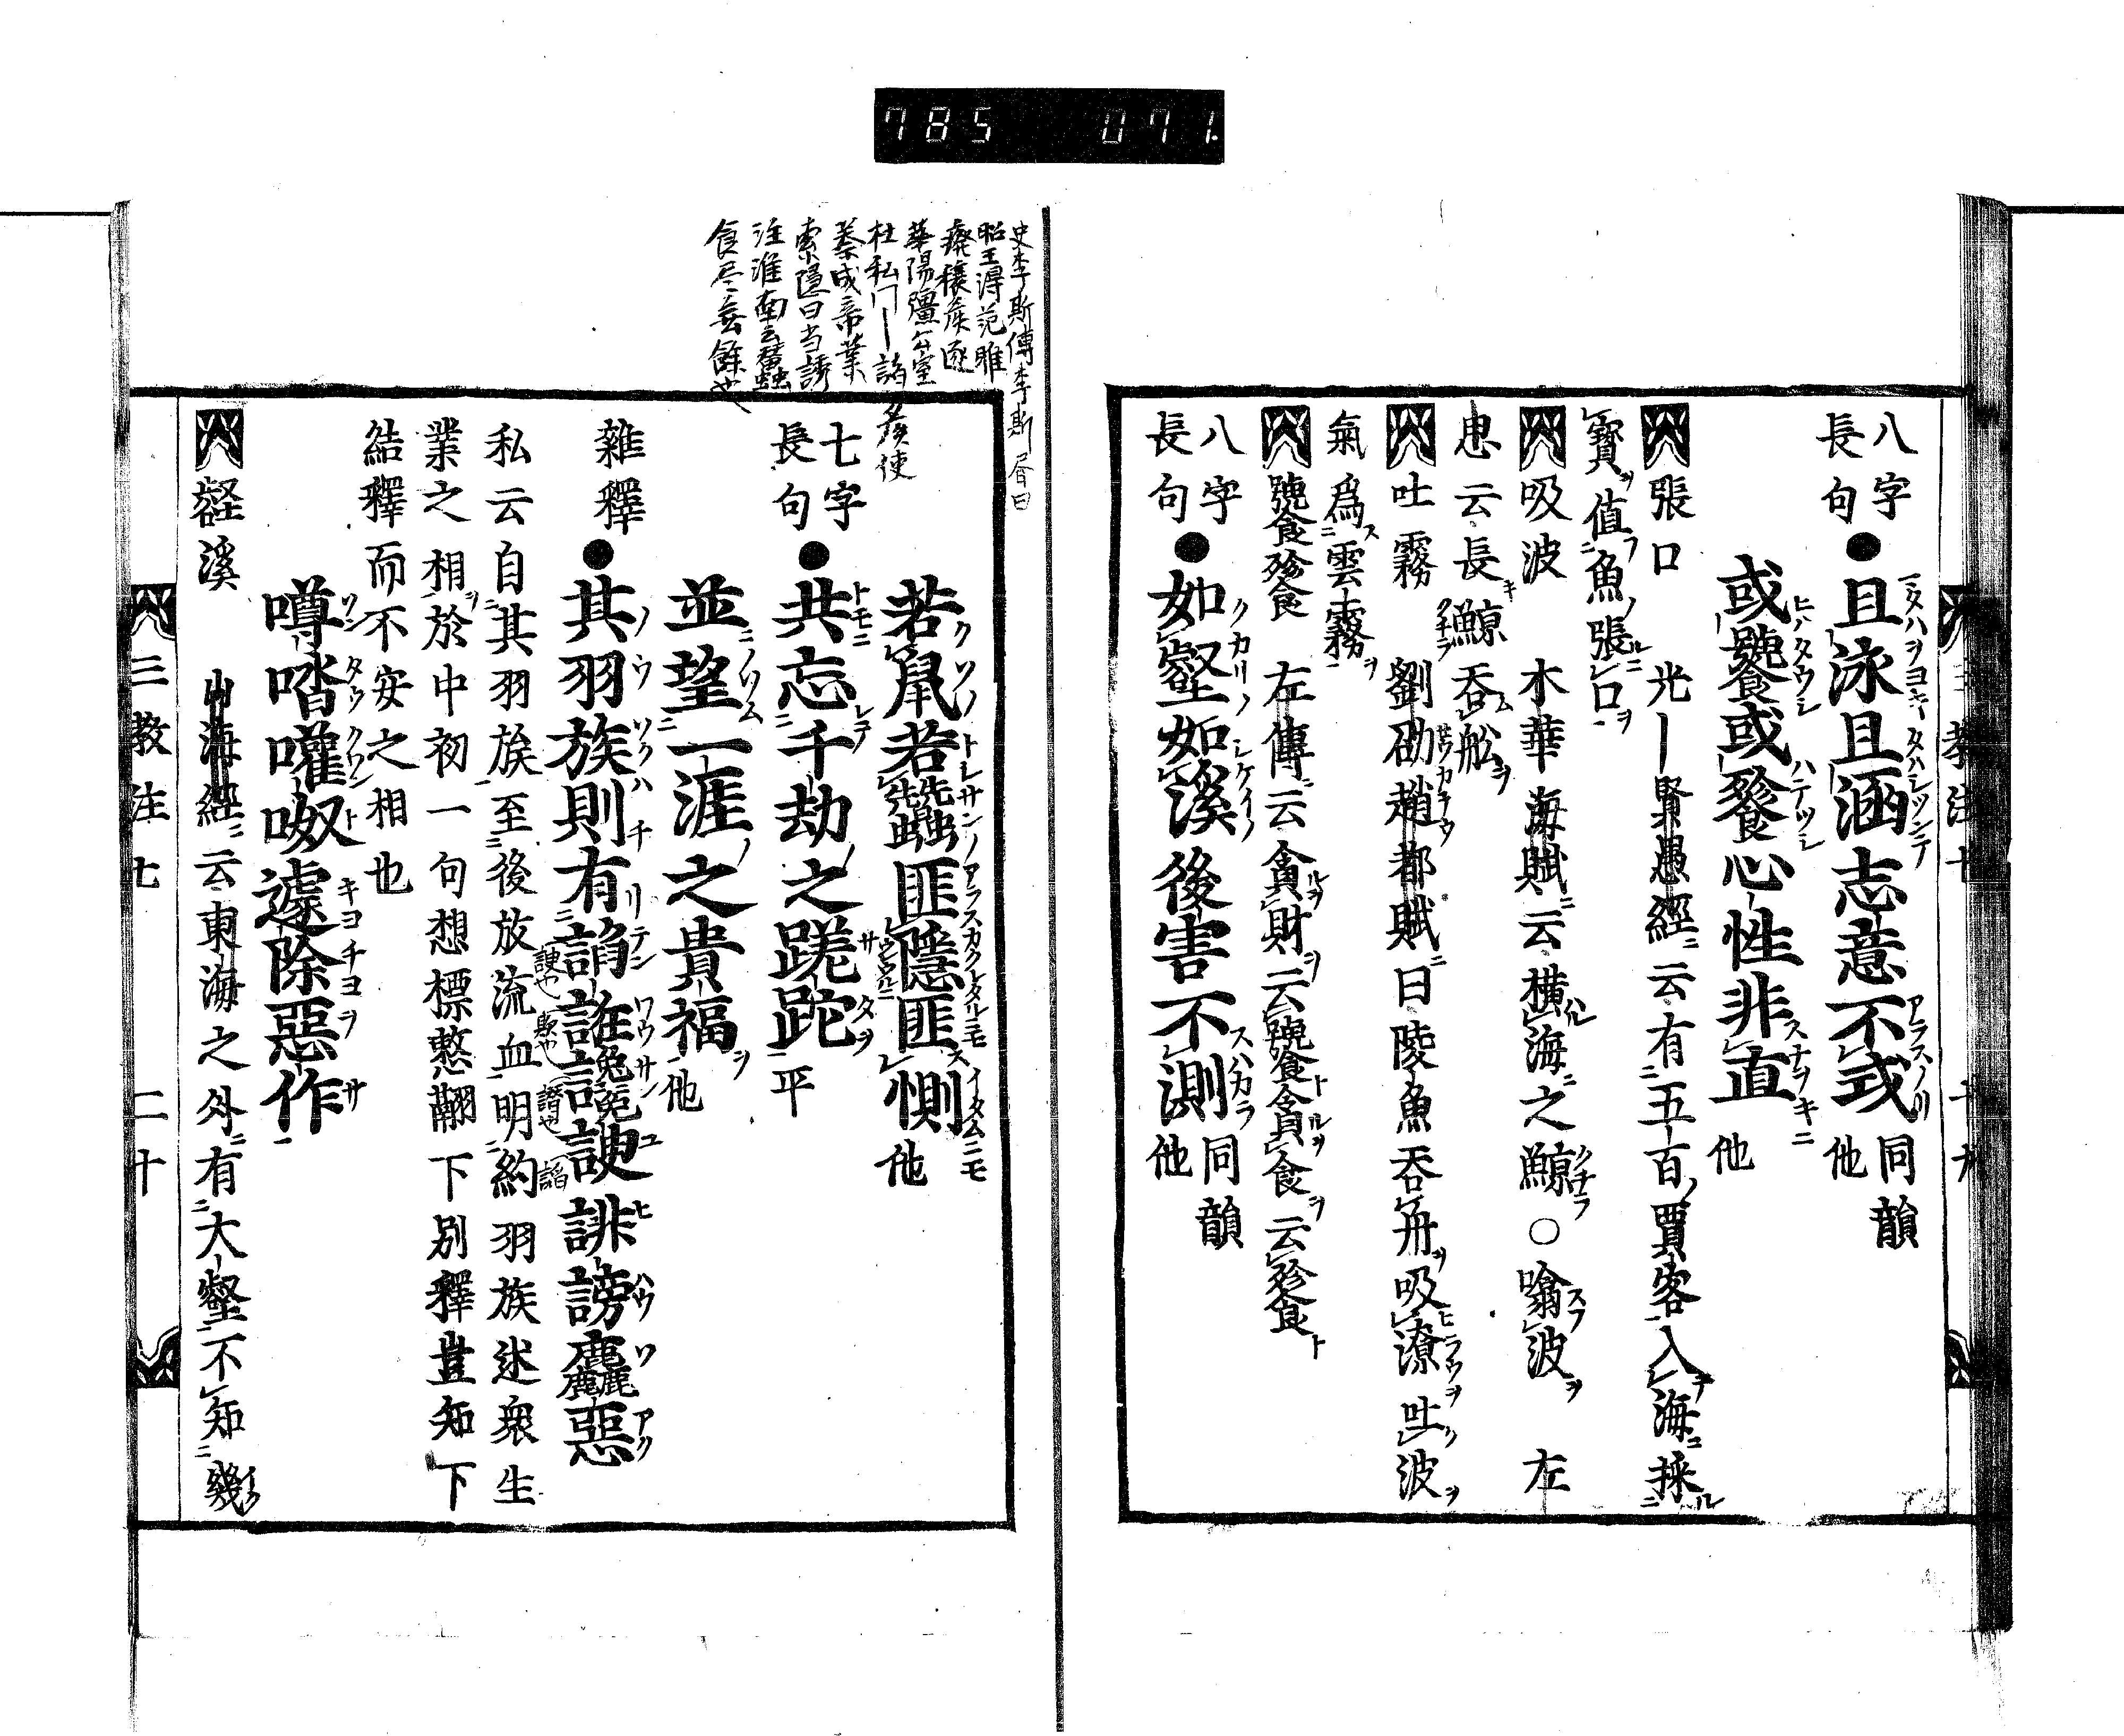 785 071
八字
長句
●且泳且涵志意不式
同韻
他
或饕或餮心性非直
他
張口 光｜賢愚經云有五百賈客入海採
寶值魚張口
吸波 木華海賦云橫海之鯨○噏波 左
思云長鯨吞舩
吐霧 劉劭趙都賦曰陵魚吞舟吸潦吐波
氣爲雲霧
饕餮 左傳云貪財云饕貪食云餮
八字
長句
●如壑如溪後害不測
同韻
他
三教注七 二十
史李斯傳李斯
昭王得范雎
廢穰侯逐
華陽彊公室
杜私門
秦成帝業
索隱曰
注淮南云蠶
食尽無餘也
若鼠若蠶匪隱匪惻
他
七字
長句
●共忘千劫之蹉跎
平
並望一涯之貴福
他
雜釋
●其羽族則有諂誑讒諛誹謗麤惡
私云自其羽族至後放流血明約羽族迷衆生
業之相於中初一句想標慜翻下別釋豈知下
結釋而不安之相也
噂喈嚾呶遽除惡作
壑溪 山海經云東海之外有大壑不知幾